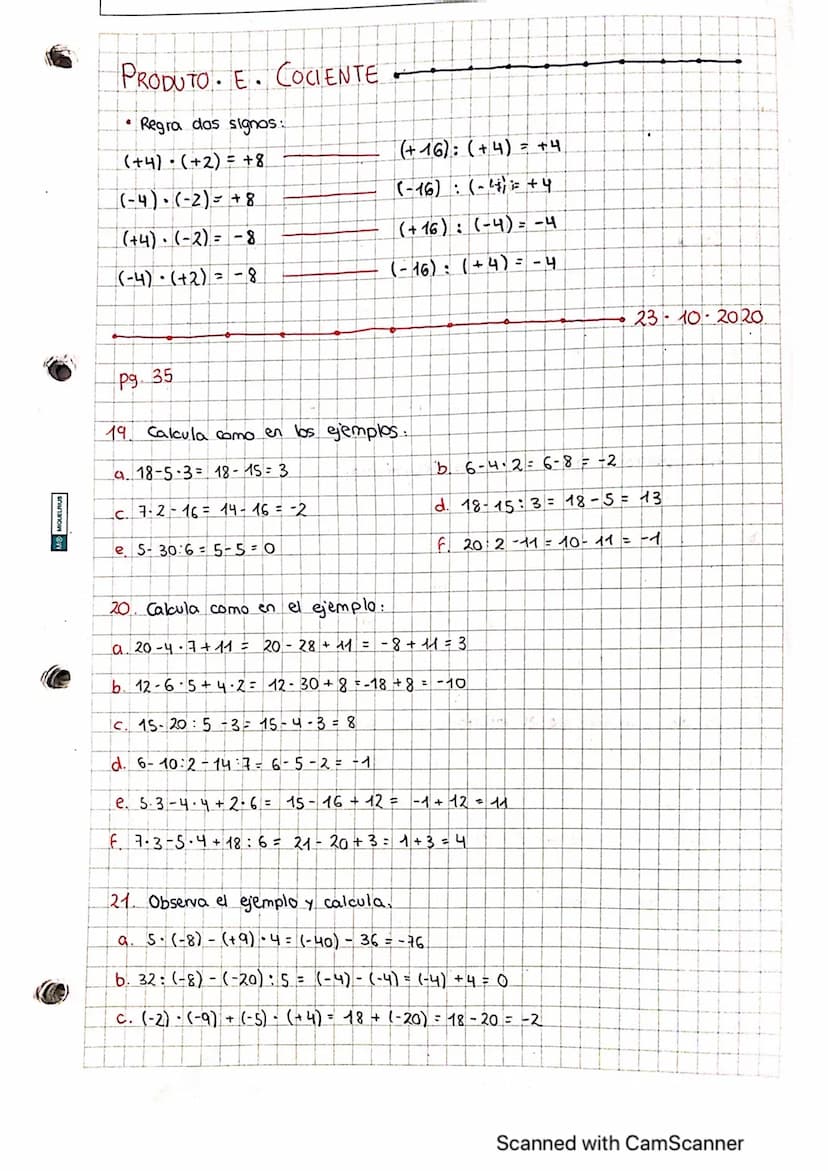 PRODUTO · E · COCIENTE
• Regra dos signos:
(+4) · (+2) = +8 (+16) : (+4) = +4
(-4) · (-2) = +8 (-16) : (-4) = +4
(+4) · (-2) = -8 (+16) : (-4) = -4
(-4) · (+2) = -8 (-16) : (+4) = -4
23 · 10 · 2020
pg. 35
19. Calcula como en los ejemplos:
a. 18-5·3= 18-15=3 b. 6-4·2=6-8=-2
c. 7·2-16= 14-16=-2 d. 18-15:3=18-5=13
e. 5-30:6=5-5=0 f. 20:2-11=10-11=-1
MIQUELRIUS
20. Calcula como en el ejemplo:
a. 20-4·7+11= 20-28+11= -8+11=3
b. 12-6·5+4·2= 12-30+8=-18+8= -10
c. 15-20:5-3=15-4-3=8
d. 6-10:2-14:7=6-5-2=-1
e. 5·3-4·4+2·6= 15-16+12= -1+12=11
f. 7·3-5·4+18:6= 21-20+3=1+3=4
21. Observa el ejemplo y calcula.
a. 5·(-8)-(+9)·4=(-40)-36=-76
b. 32:(-8)-(-20):5=(-4)-(-4)=(-4)+4=0
c. (-2)·(-9)+(-5)·(+4)=18+(-20)=18-20=-2
Scanned with CamScanner